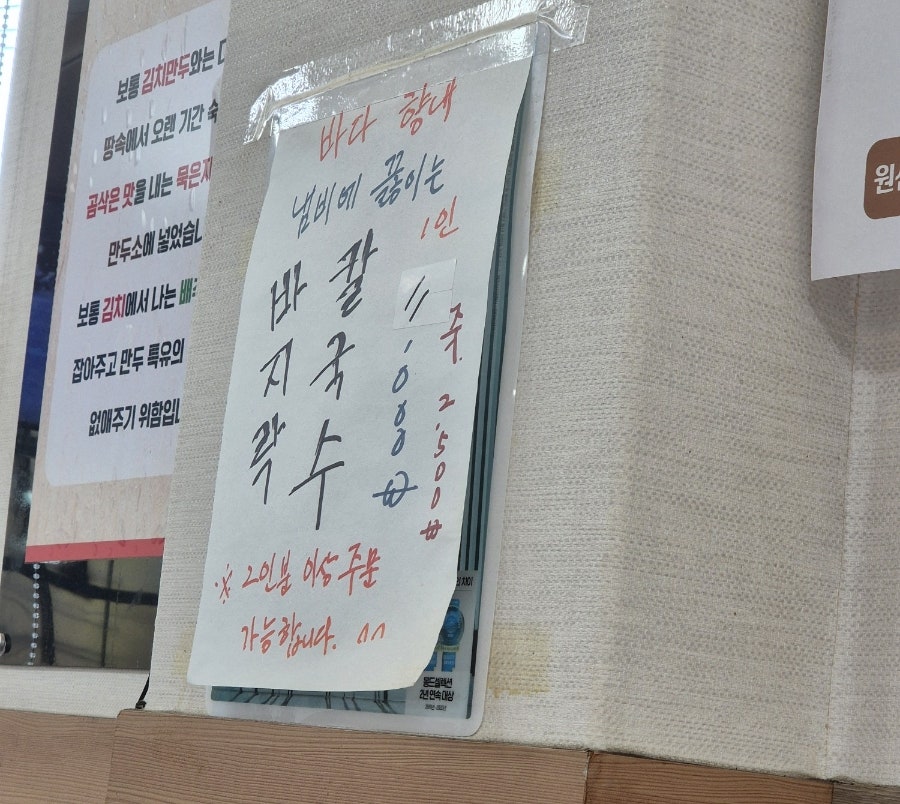 보통 김치만두와는
땅속에서 오랜 기간 숙
곰삭은 맛을 내는 묵은지
만두소에 넣었습니
보통 김치에서 나는
잡아주고 만두 특유의
없애주기 위함입니
바다 향내
냄비에 끓이는
바지락
칼국수
1인
11,000₩
주. 2,500₩
※ 2인분 이상 주문
가능합니다. ^^
차이
몽드셀렉션
2년 연속 대상